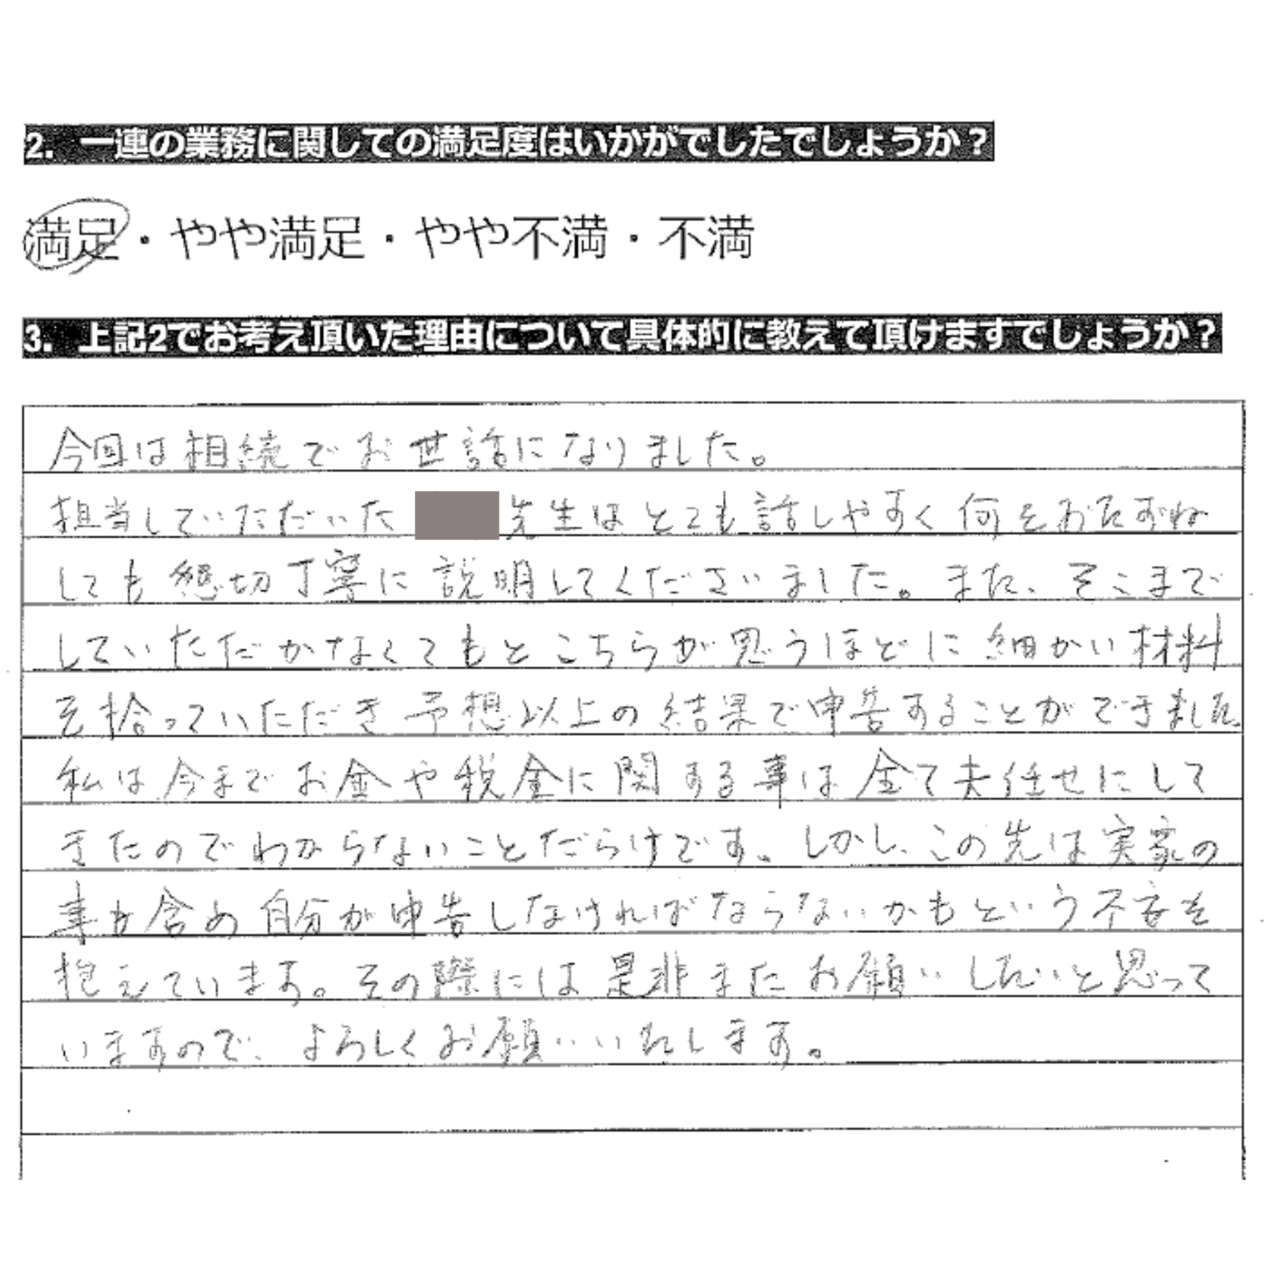 2. 一連の業務に関しての満足度はいかがでしたでしょうか？
満足・やや満足・やや不満・不満
3. 上記2でお考え頂いた理由について具体的に教えて頂けますでしょうか？
今回は相続でお世話になりました。
担当していただいた 先生はとても話しやすく何をおたずね
しても懇切丁寧に説明してくださいました。また、そこまで
していただかなくてもとこちらが思うほどに細かい材料
を拾っていただき予想以上の結果で申告することができました。
私は今までお金や税金に関する事は全て夫任せにして
きたのでわからないことだらけです。しかし、この先は実家の
事も含め自分が申告しなければならないかもという不安を
抱えています。その際には是非またお願いしたいと思って
いますので、よろしくお願いいたします。